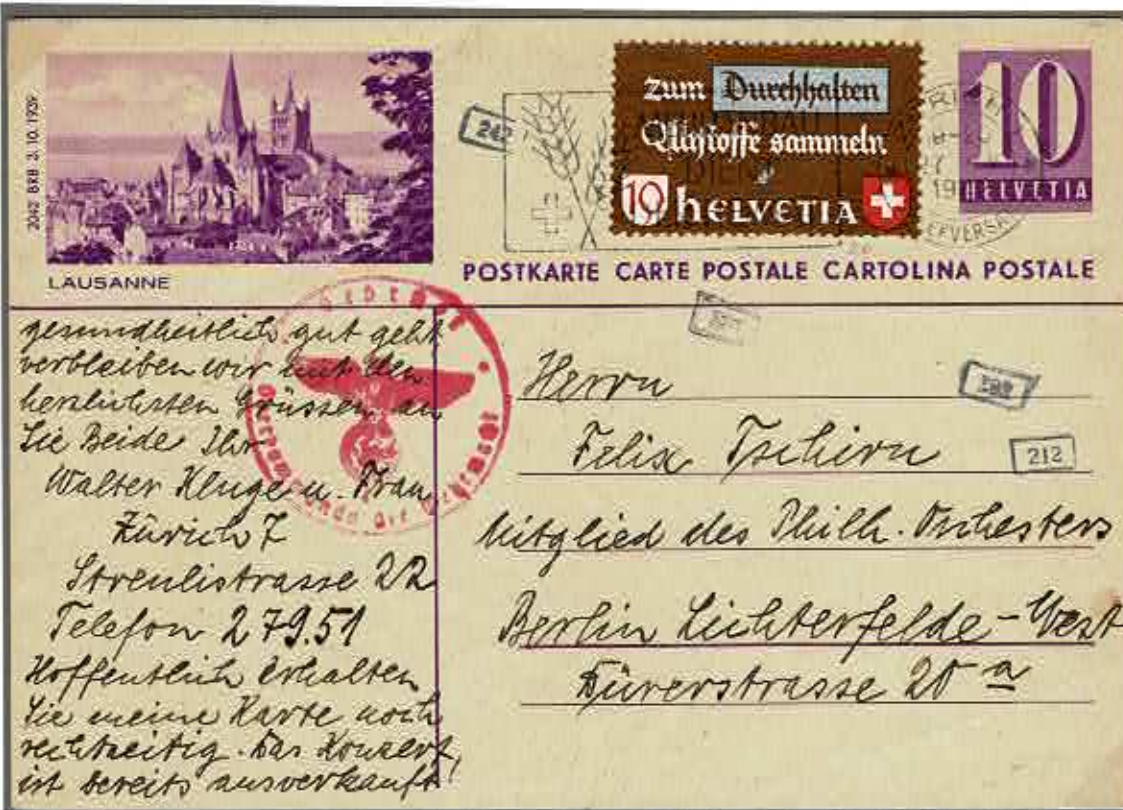 2042 BRB 3.10.1939
LAUSANNE
zum Durchhalten
Altstoffe sammeln
10 HELVETIA
10
HELVETIA
POSTKARTE CARTE POSTALE CARTOLINA POSTALE
242
212
gesundheitlich gut geht
verbleiben wir mit den
herzlichsten Grüssen an
Sie Beide Ihr
Walter Kluge u. Frau
Zürich 7
Streulistrasse 22
Telefon 27951
Hoffentlich erhalten
Sie meine Karte noch
rechtzeitig. Das Konzert
ist bereits ausverkauft!
Oberkommando der Wehrmacht
Herrn
Felix Tschirn
Mitglied des Philh. Orchesters
Berlin Lichterfelde-West
Dürerstrasse 20 a